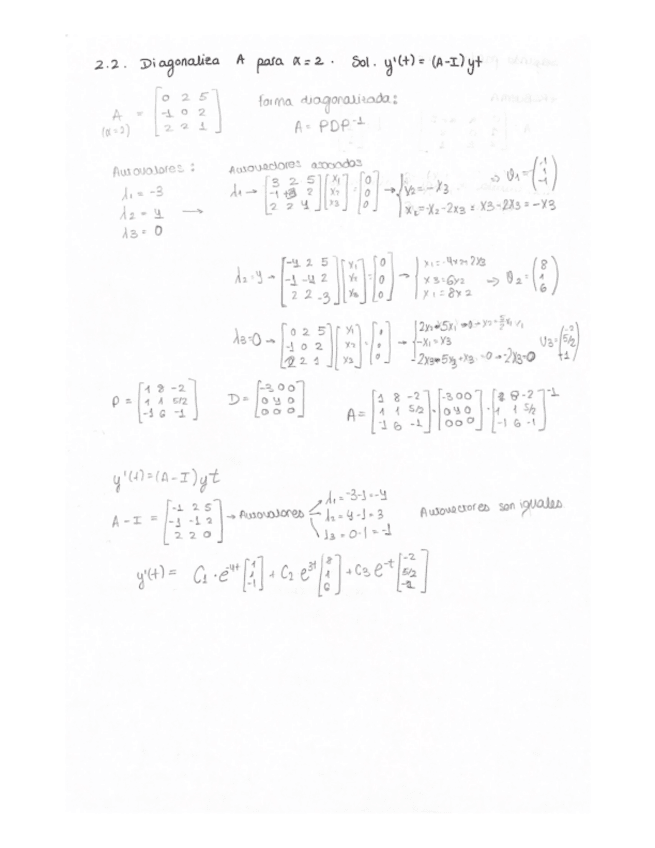 2.2. Diagonaliza A para α=2. Sol. y'(t) = (A-I)yt
A (α=2) = [0 2 5; -1 0 2; 2 2 1] Forma diagonalizada:
A = PDP⁻¹
Autovalores: Autovectores asociados
λ1 = -3
λ2 = 4 →
λ3 = 0
λ1 → [3 2 5; -1 +3 2; 2 2 4] [x1; x2; x3] = [0; 0; 0] → { x2 = -x3 ⇒ v1 = (-1; 1; -1)
-x2-2x3 = x3-2x3 = -x3
λ2=4 → [-4 2 5; -1 -4 2; 2 2 -3] [x1; x2; x3] = [0; 0; 0] → { x1 = -4x2+2x3
x3 = 6x2 ⇒ v2 = (8; 1; 6)
x1 = 8x2
λ3=0 → [0 2 5; -1 0 2; 2 2 1] [x1; x2; x3] = [0; 0; 0] → v3 = (-2; 5/2; -1)
P = [1 8 -2; 1 1 5/2; -1 6 -1] D = [-3 0 0; 0 4 0; 0 0 0] A = [1 8 -2; 1 1 5/2; -1 6 -1] · [-3 0 0; 0 4 0; 0 0 0] · [1 8 -2; 1 1 5/2; -1 6 -1]⁻¹
y'(t) = (A-I)yt
A-I = [-1 2 5; -1 -1 2; 2 2 0] → Autovalores
λ1 = -3-1 = -4
λ2 = 4-1 = 3
λ3 = 0-1 = -1
Autovectores son iguales
y'(t) = C1 · e^-4t [1; 1; -1] + C2 e^3t [8; 1; 6] + C3 e^-t [-2; 5/2; -1]